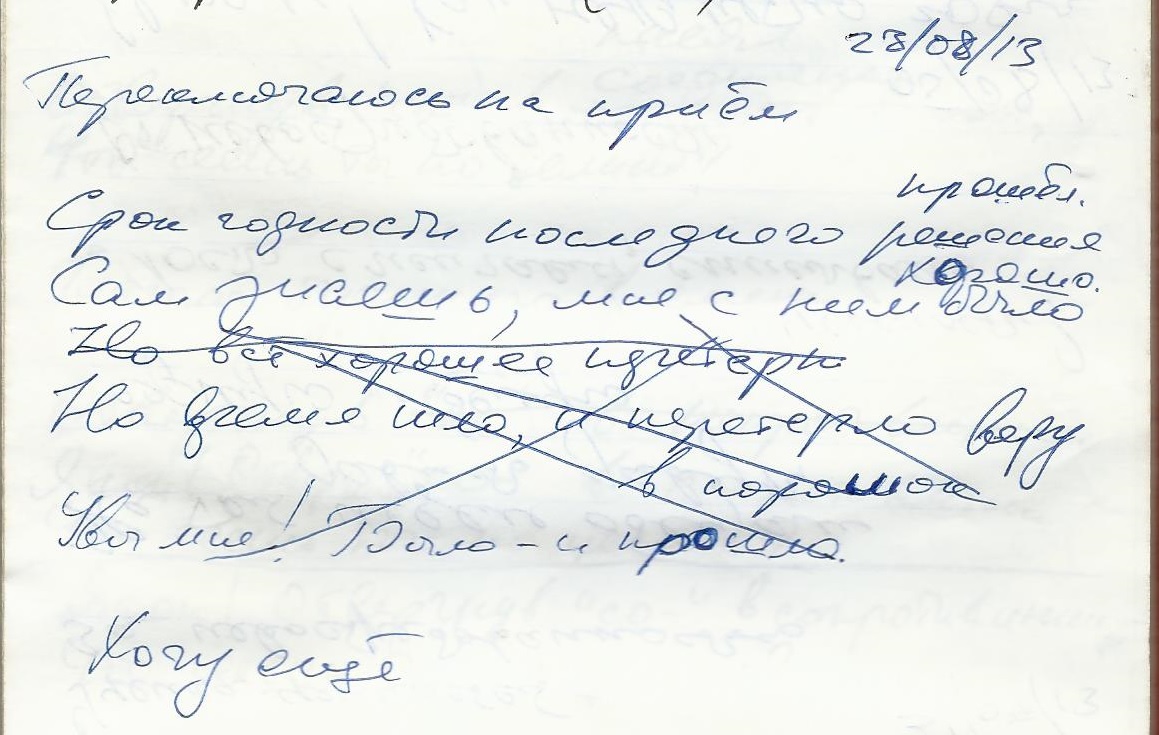 23/08/13
Переключаюсь на приём
Срок годности последнего решения прошёл.
Сам знаешь, мне с ним было хорошо.
Но всё хорошее
Но время шло, и перетерло веру
в порошок
Увы мне! Было – и прошло.
Хочу ещё